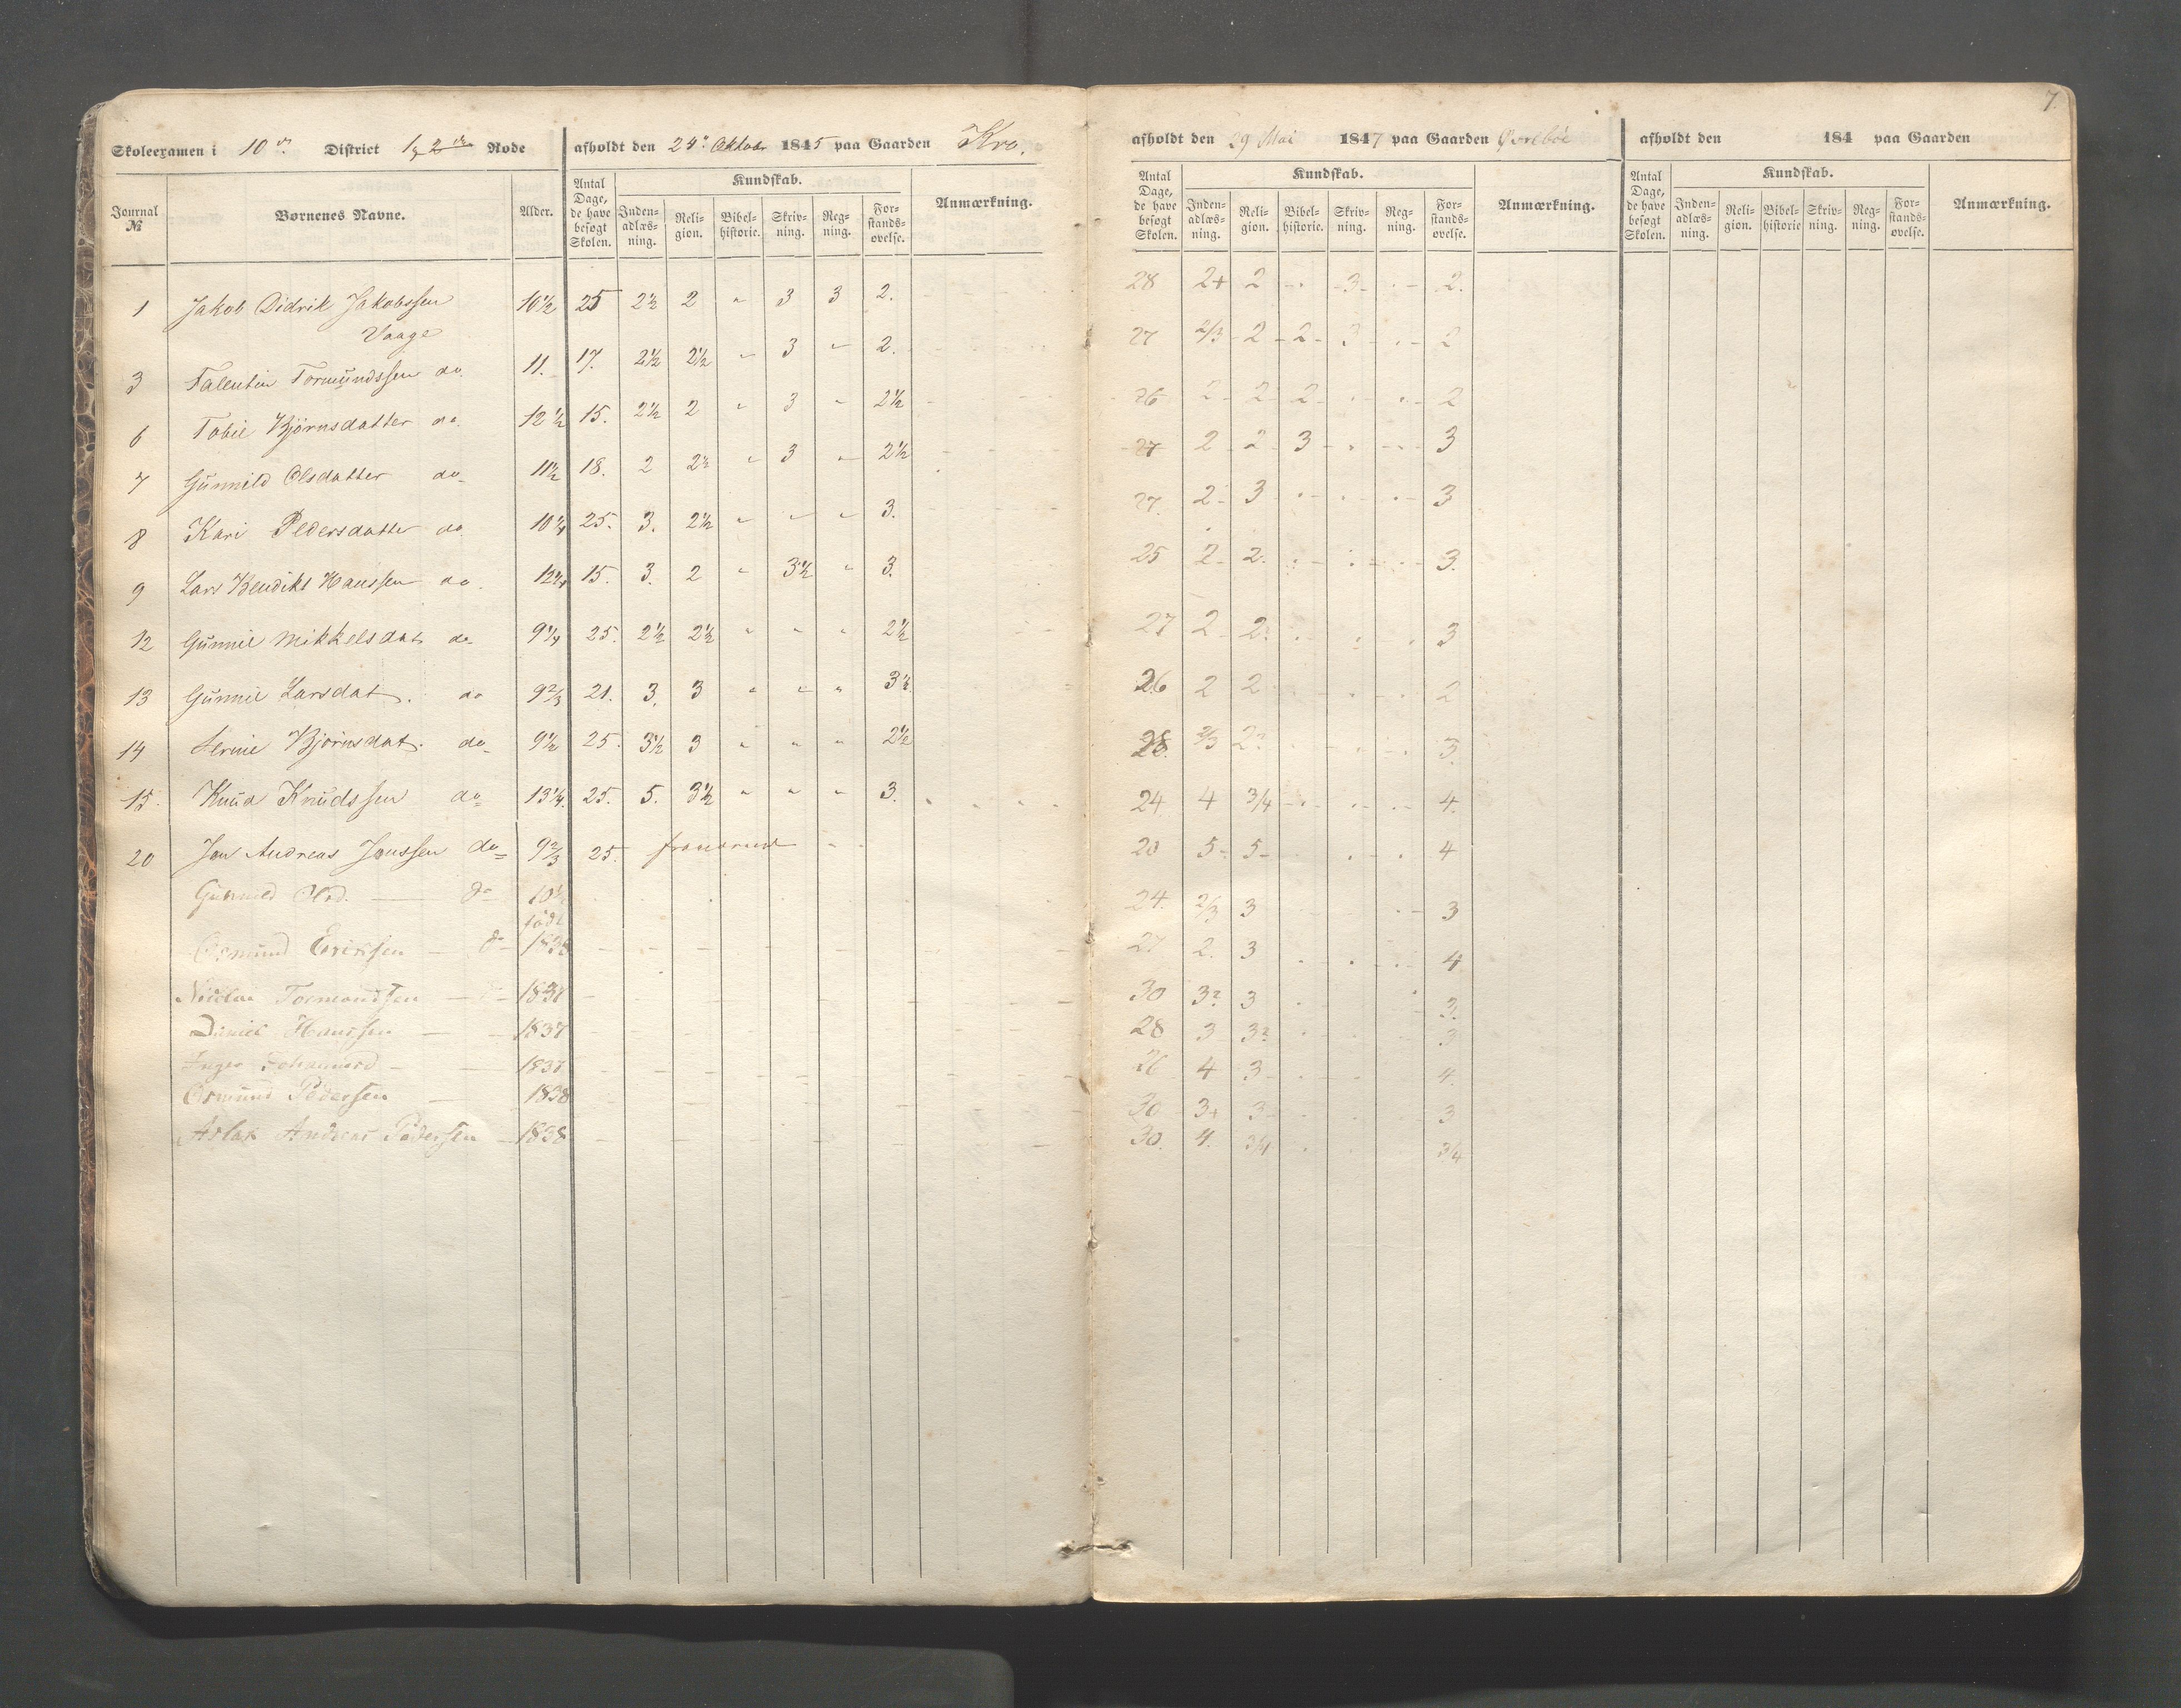 7.
Skoleexamen i 10de District 1 & 2den Rode afholdt den 24de Oktobr 1845 paa Gaarden Kro.
afholdt den 29 Mai 1847 paa Gaarden Øvrebøe
afholdt den 184 paa Gaarden
Journal № Børnenes Navne. Alder. Antal Dage, de have besøgt Skolen. Kundskab. Inden-adlæs-ning. Reli-gion. Bibel-historie. Skriv-ning. Reg-ning. For-stands-øvelse. Anmærkning.
Antal Dage, de have besøgt Skolen. Kundskab. Inden-adlæs-ning. Reli-gion. Bibel-historie. Skriv-ning. Reg-ning. For-stands-øvelse. Anmærkning.
Antal Dage, de have besøgt Skolen. Kundskab. Inden-adlæs-ning. Reli-gion. Bibel-historie Skriv-ning. Reg-ning. For-stands-øvelse. Anmærkning.
1 Jakob Didrik Jakobssen 10½ 25 2½ 2 " 3 3 2. 28 2+ 2 - 3 - 2.
Vaage
3 Tallentin Tormundssen do. 11. 17. 2½ 2½ " 3 " 2. 27 2/3 2 2 3 - 2
6 Tobie Bjørnsdatter do. 12½ 15. 2½ 2 " 3 " 2½ 26 2 2 2 - - 2
7 Gunnild Olsdatter do 11½ 18. 2 2½ " 3 " 2½ 27 2 2 3 - - 3
8 Kari Pedersdatter do 10¼ 25. 3. 2½ " " " 3. 27. 2 3 - - - 3
9 Lars Bendikt Hanssen do. 12¼ 15. 3. 2 " 3½ " 3. 25 2 2. - - - 3.
12 Gunnil Mikkelsdat. do 9¼ 25. 2½ 2½ " " " 2½ 27 2 2. - - - 3
13 Gunnil Larsdat. do 9⅔ 21. 3. 3 " " " 3½ 26 2 2 - - - 2
14 Bjørnsdat. do 9½ 25. 3½ 3 " " " 2½ 28. 2/3 2? - - - 3.
15. Knud Knudssen do 13¼. 25. 5. 3½ " " " 3. 24 4 3/4 - - - 4.
20 Jon Andreas Jonssen do 9⅔ 25. 20 5 5 - - - 4
Gunnild Olsd. — do 10½ 24. 2/3 3 - - 3
født
Osmund Eriksen — do 1838 27 2. 3 - - - 4
Tormondsen — 1837 30 3? 3 - - 3.
Daniel Hanssen — 1837 28 3 3? - - 3
Inger — 1837 26 4 3 - - 4.
Osmund Pedersen — 1838 30 3+ 3 - - 3
Aslak Andreas Pedersen — 1838 30. 4. 3/4 - - 3/4